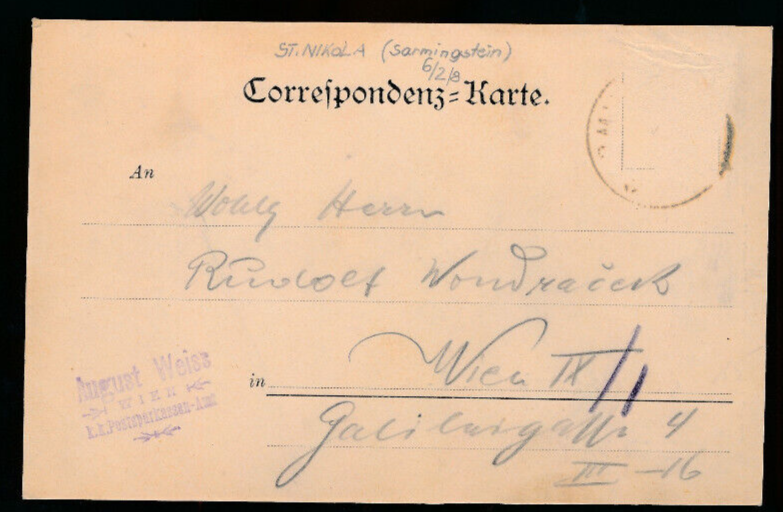 ST. NIKOLA (Sarmingstein)
6/2/8
Correſpondenz=Karte.
An
Wohlg Herrn
Rudolf Wondraček
in Wien IX/1
Galileigasse 4
III - 16
August Weiss
WIEN
k.k. Postsparkassen-Amt